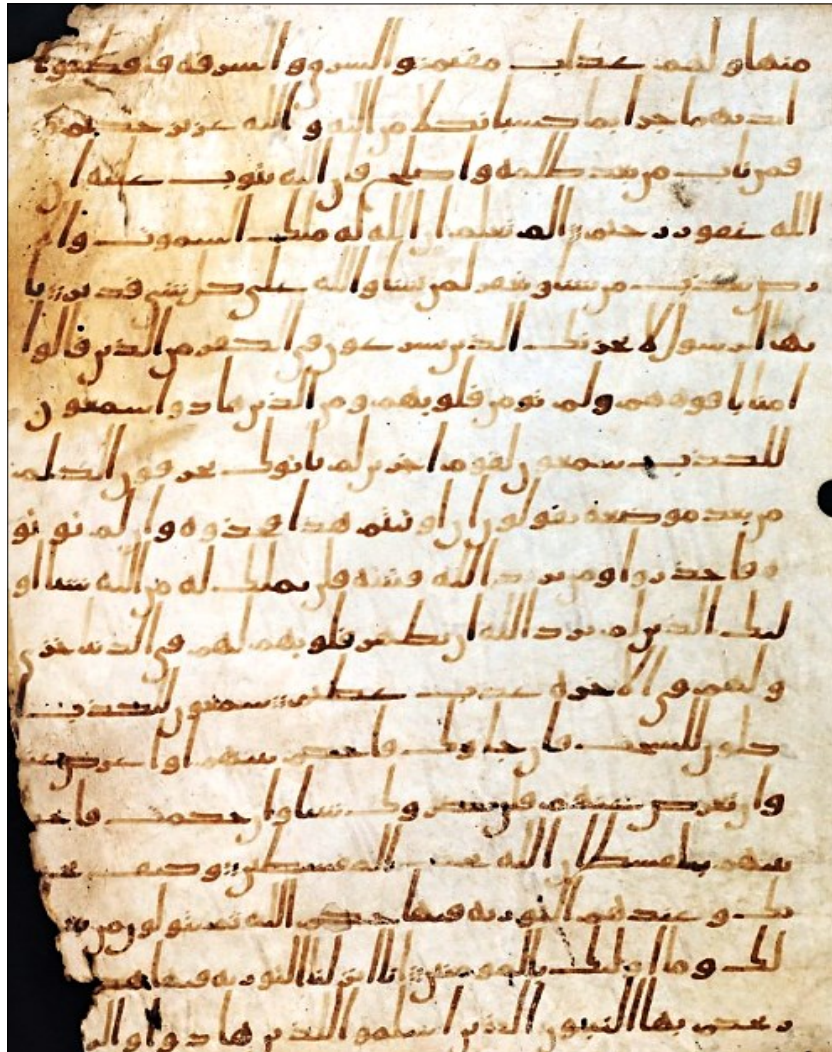 منها ولهم عذاب مقيم والسرق والسرقه فاقطعوا
ايديهما جزا بما كسبا نكلا من الله والله عزيز حكيم
فمن تاب من بعد ظلمه واصلح فان الله يتوب عليه ان
الله غفور رحيم الم تعلم ان الله له ملك السموت والا
رض يعذب من يشا ويغفر لمن يشا والله على كل شي قدير يا
يها الرسول لا يحزنك الذين يسرعون في الكفر من الذين قالوا
امنا بافوههم ولم تومن قلوبهم ومن الذين هادوا سمعون
للكذب سمعون لقوم اخرين لم ياتوك يحرفون الكلم
من بعد موضعه يقولون ان اوتيتم هذا فخذوه وان لم توتو
ه فاحذروا ومن يرد الله فتنته فلن تملك له من الله شيا او
ليك الذين لم يرد الله ان يطهر قلوبهم لهم في الدنيا خزي
ولهم في الاخره عذب عظيم سمعون للكذب ا
كلون للسحت فان جاوك فاحكم بينهم او اعرض عنـ
وان تعرض عنهم فلن يضروك شيا وان حكمت فاحـ
بينهم بالقسط ان الله يحب المقسطين وكيف يحـ
نك وعندهم التوريه فيها حكم الله ثم يتولون من بـ
لك وما اوليك بالمومنين انا انزلنا التوريه فيها هد
يحكم بها النبيون الذين اسلموا للذين هادوا والر